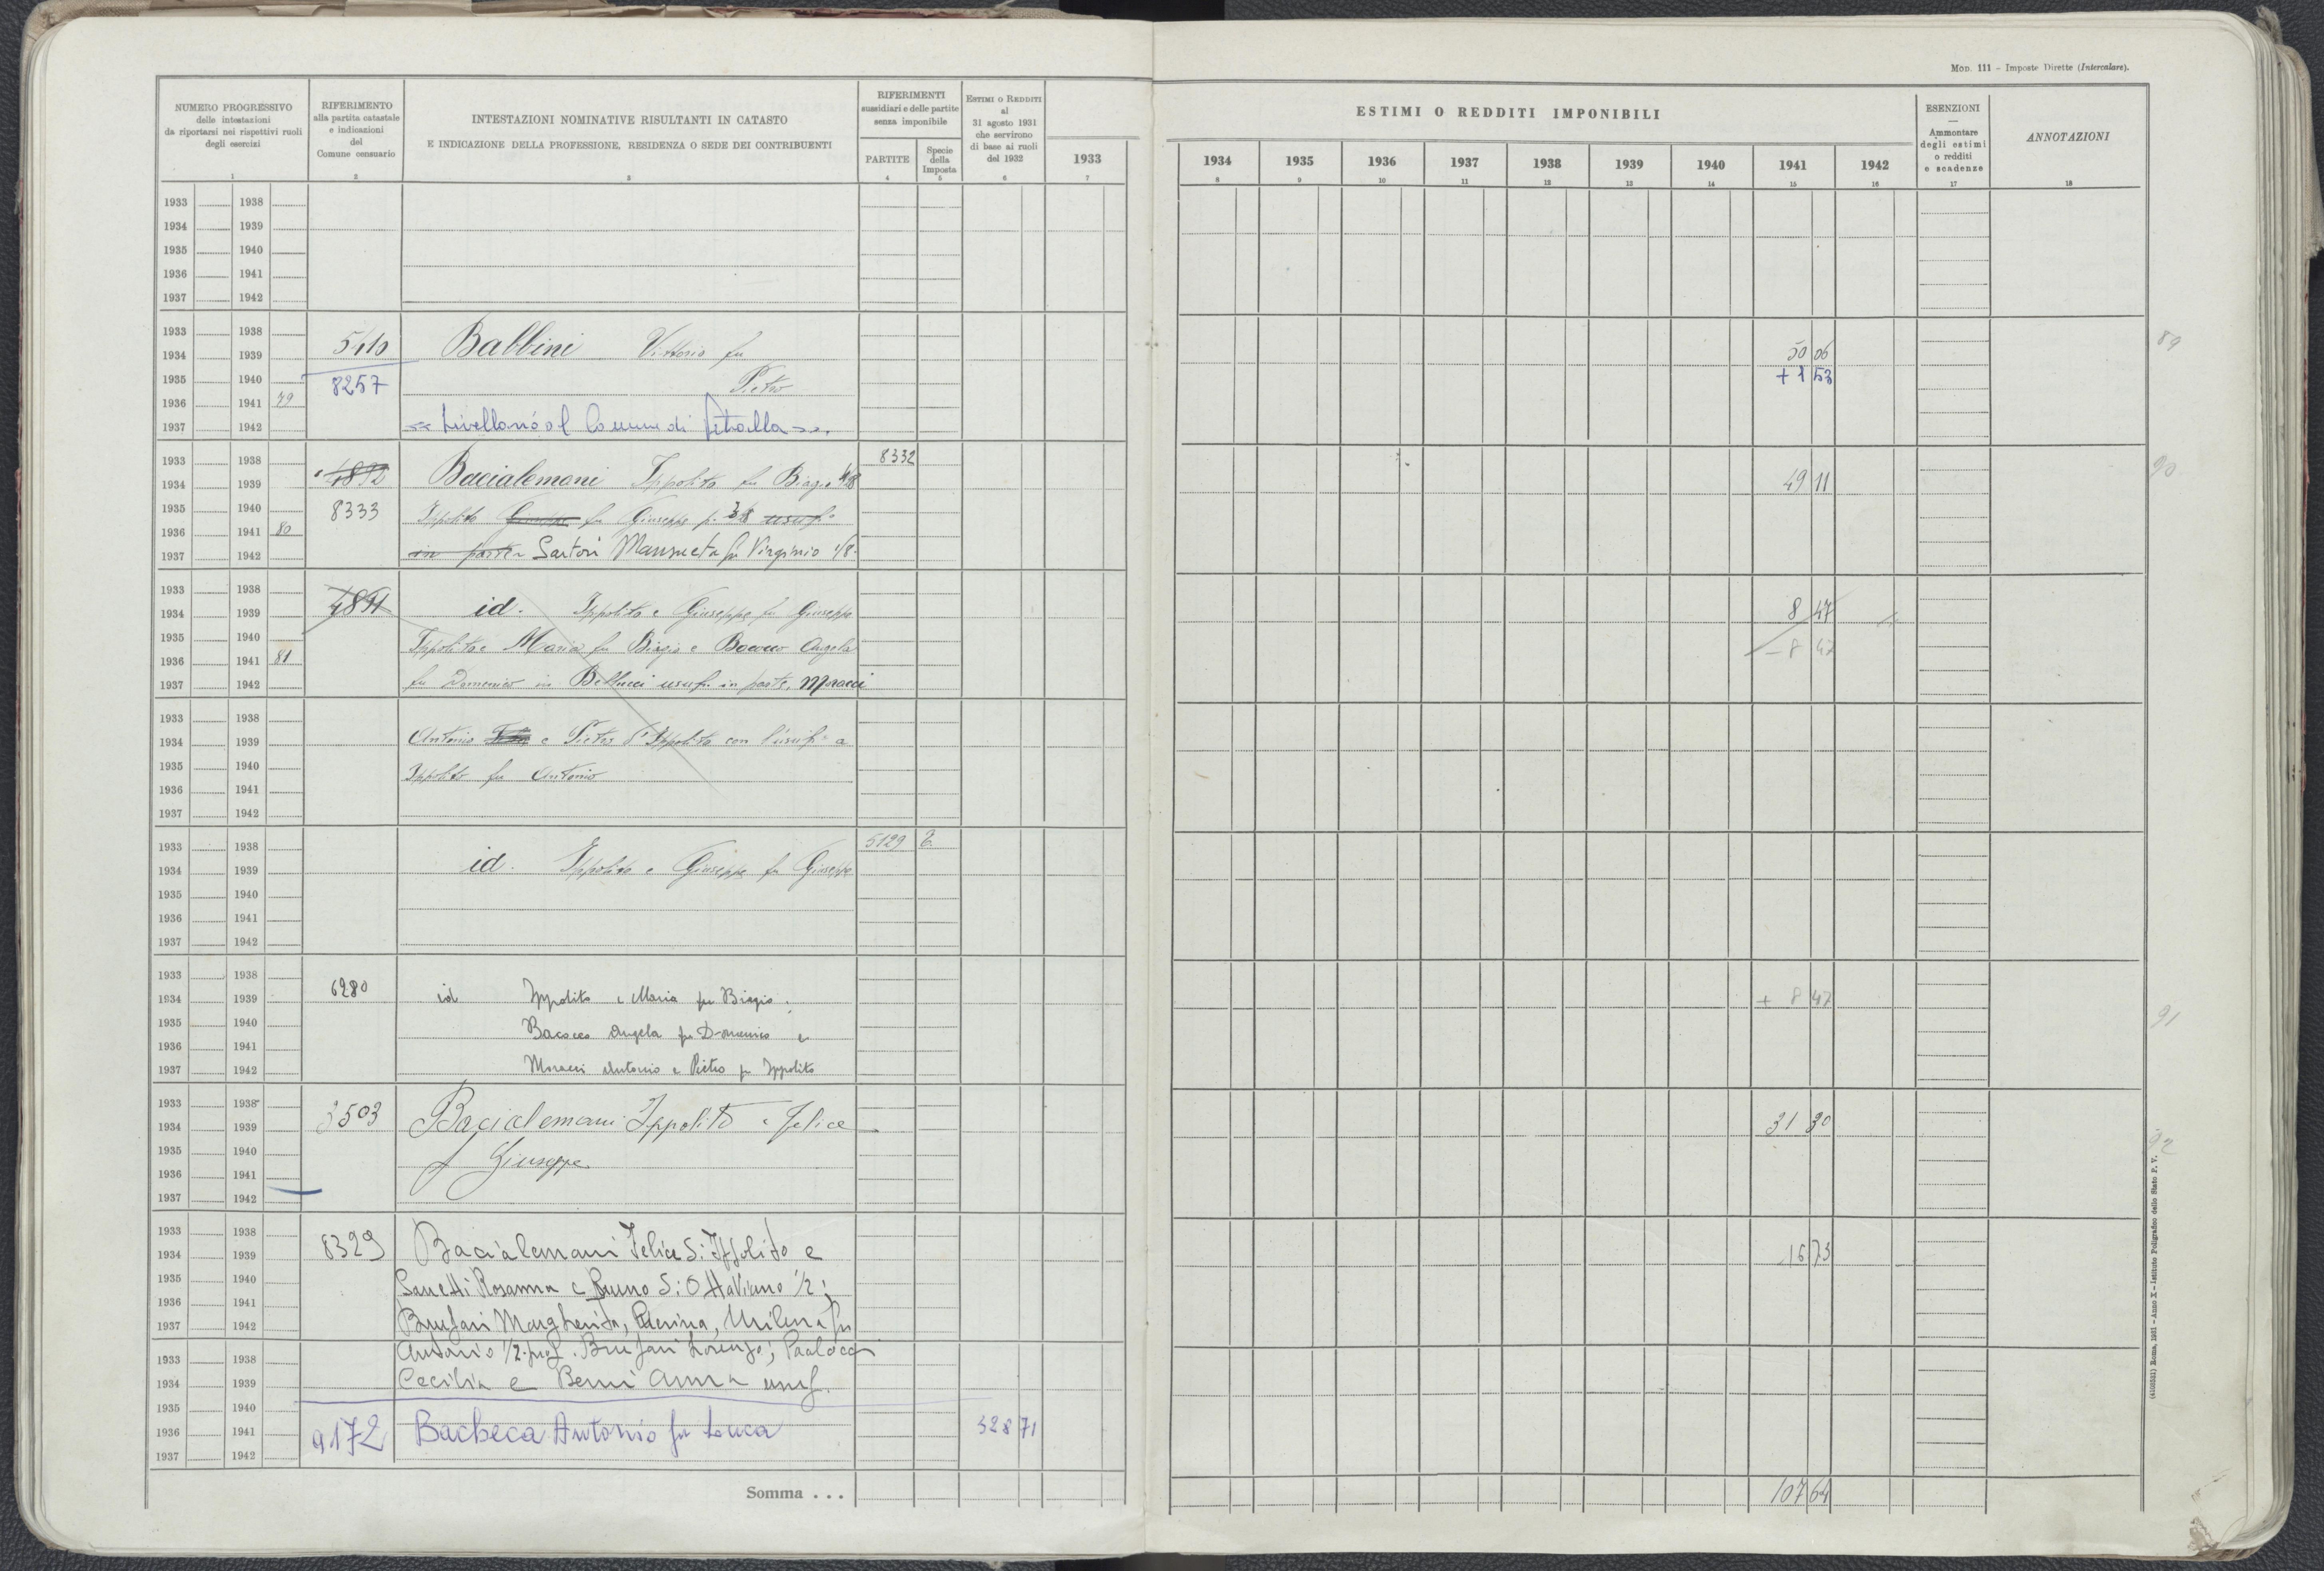 MOD. 111 - Imposte Dirette (Intercalare).
NUMERO PROGRESSIVO
delle intestazioni
da riportarsi nei rispettivi ruoli
degli esercizi
1
RIFERIMENTO
alla partita catastale
e indicazioni
del
Comune censuario
2
INTESTAZIONI NOMINATIVE RISULTANTI IN CATASTO
E INDICAZIONE DELLA PROFESSIONE, RESIDENZA O SEDE DEI CONTRIBUENTI
3
RIFERIMENTI
sussidiari e delle partite
senza imponibile
PARTITE
4
Specie
della
Imposta
5
ESTIMI O REDDITI
al
31 agosto 1931
che servirono
di base ai ruoli
del 1932
6
1933
7
ESTIMI O REDDITI IMPONIBILI
1934 1935 1936 1937 1938 1939 1940 1941 1942
8 9 10 11 12 13 14 15 16
ESENZIONI
—
Ammontare
degli estimi
o redditi
e scadenze
17
ANNOTAZIONI
18
1933 1938
1934 1939
1935 1940
1936 1941
1937 1942
1933 1938
1934 1939 Balbini Vittorio fu 50 06 89
1935 1940 8257 Pietro + 1 53
1936 1941 79
1937 1942 Comune di
1933 1938 8332
1934 1939 4892 Bacialemani Ippolito fu Biagio 4/8 49 11 90
1935 1940 8333 Ippolito Giuseppe fu Giuseppe p. 3/8 usuf.
1936 1941 80
1937 1942 in parte Sartori Mansueta fu Virginio 1/8.
1933 1938
1934 1939 4891 id. Ippolito e Giuseppe fu Giuseppe 8 47
1935 1940 Ippolito e Maria fu Biagio e Bacocco Angela - 8 47
1936 1941 81
1937 1942 fu Domenico in Bellucci usuf. in parte, Moracci
1933 1938
1934 1939 Antonio e Pietro d'Ippolito con l'usuf. a
1935 1940 Ippolito fu Antonio
1936 1941
1937 1942
1933 1938 5129
1934 1939 id. Ippolito e Giuseppe fu Giuseppe
1935 1940
1936 1941
1937 1942
1933 1938
1934 1939 6280 id Ippolito e Maria fu Biagio, + 8 47 91
1935 1940 Bacocco Angela fu Domenico e
1936 1941
1937 1942 Moracci Antonio e Pietro fu Ippolito
1933 1938
1934 1939 3503 Bacialemani Ippolito e Felice 31 30 92
1935 1940 f Giuseppe
1936 1941
1937 1942
1933 1938
1934 1939 8329 Bacialemani Felice di Ippolito e 16 73
1935 1940 Sanetti Rosanna e Bruno di Ottaviano 1/2;
1936 1941
1937 1942 Margherita, Milena fu
1933 1938 Antonio 1/2. Lorenzo;
1934 1939 Cecilia e Berni Anna usuf.
1935 1940
1936 1941 9172 Bacheca Antonio fu Luca 328 71
1937 1942
Somma . . . 107 64
(4109531) Roma, 1931 - Anno X - Istituto Poligrafico dello Stato P. V.